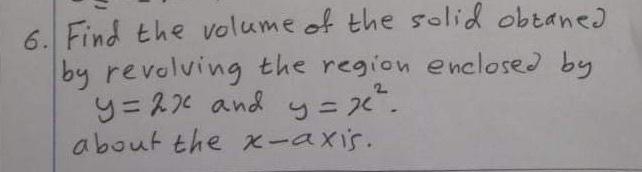 6. Find the volume of the solid obtaned
by revolving the region enclosed by
y = 2x and y = x².
about the x-axis.